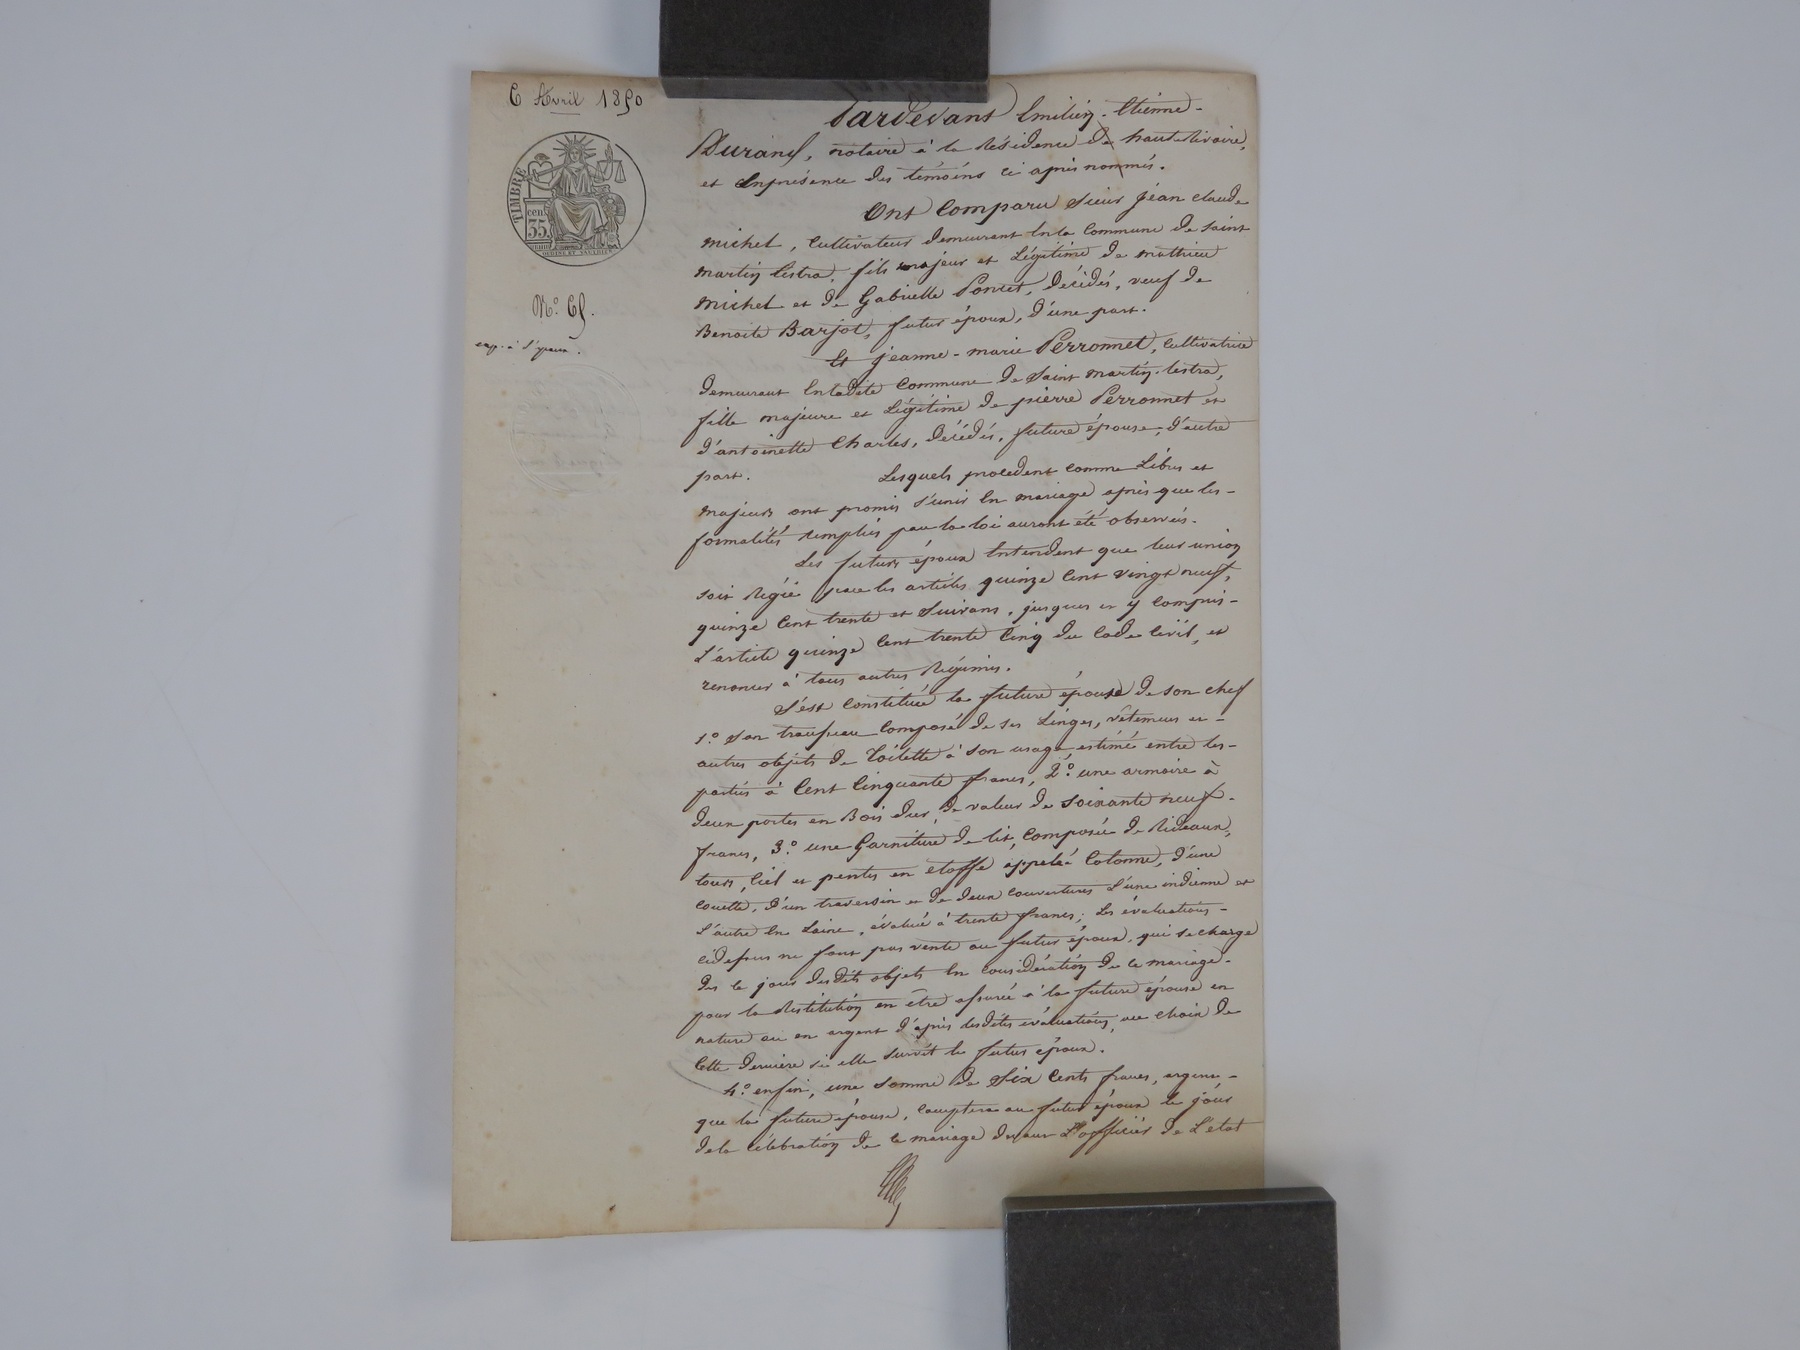 6 Avril 1850
TIMBRE
cen.
35
N.º 65.
exp. à l'époux.
Pardevant Emilien-Etienne-
Durand, notaire à la Résidence de haute Rivoire,
et Enprésence des témoins ci après nommés.
Ont Comparu Sieur Jean claude
michel, Cultivateur demeurant En la Commune de Saint
martin lestra, fils majeur et Légitime de mathieu
michel et de Gabrielle Poncet, décédés, veuf de
Benoite Barjot, futur époux, d'une part.
Et jeanne-marie Perronnet, Cultivatrice
demeurant Enladite Commune de Saint martin-lestra,
fille majeure et Légitime de pierre Perronnet et
d'antoinette Charles, décédés, future épouse, d'autre
part. Lesquels procedent comme Libres et
majeurs ont promis s'unir En mariage après que les-
formalités remplies par la loi auront été observées.
Les futurs époux Entendent que leur union
soit Régie par les articles quinze Cent vingt neuf,
quinze Cent trente et Suivans, jusques et y compris-
L'article quinze Cent trente Cinq du Code Civil, et
renoncer à tous autres Régimes.
S'est Constituée la future épouse de son chef
1.º Son trousseau Composé de ses Linges, vêtemens et-
autres objets de Toilette à son usage, estimé entre les-
parties à Cent Cinquante francs, 2.º une armoire à
deux portes en Bois dur, de valeur de Soixante neuf-
francs, 3.º une Garniture de lit, Composée de Rideaux,
tours, Ciel et pentes en etoffe appelée Cotonne, d'une
Couette, d'un traversin et de deux Couvertures L'une indienne et
L'autre En Laine, évalué à trente francs; Les évaluations-
cidessus ne font pas vente au futur époux, qui se charge
des le jour desdits objets En Considération de ce mariage-
pour la Restitution en être assurée à la future épouse en
nature ou en argent d'après lesdites évaluations, au Choix de
Cette dernière si elle survit le futur époux.
4.º enfin, une Somme de Six Cents francs, argent-
que la future épouse, Comptera au futur époux le jour
dela Célébration de ce mariage devant L'officier de L'état